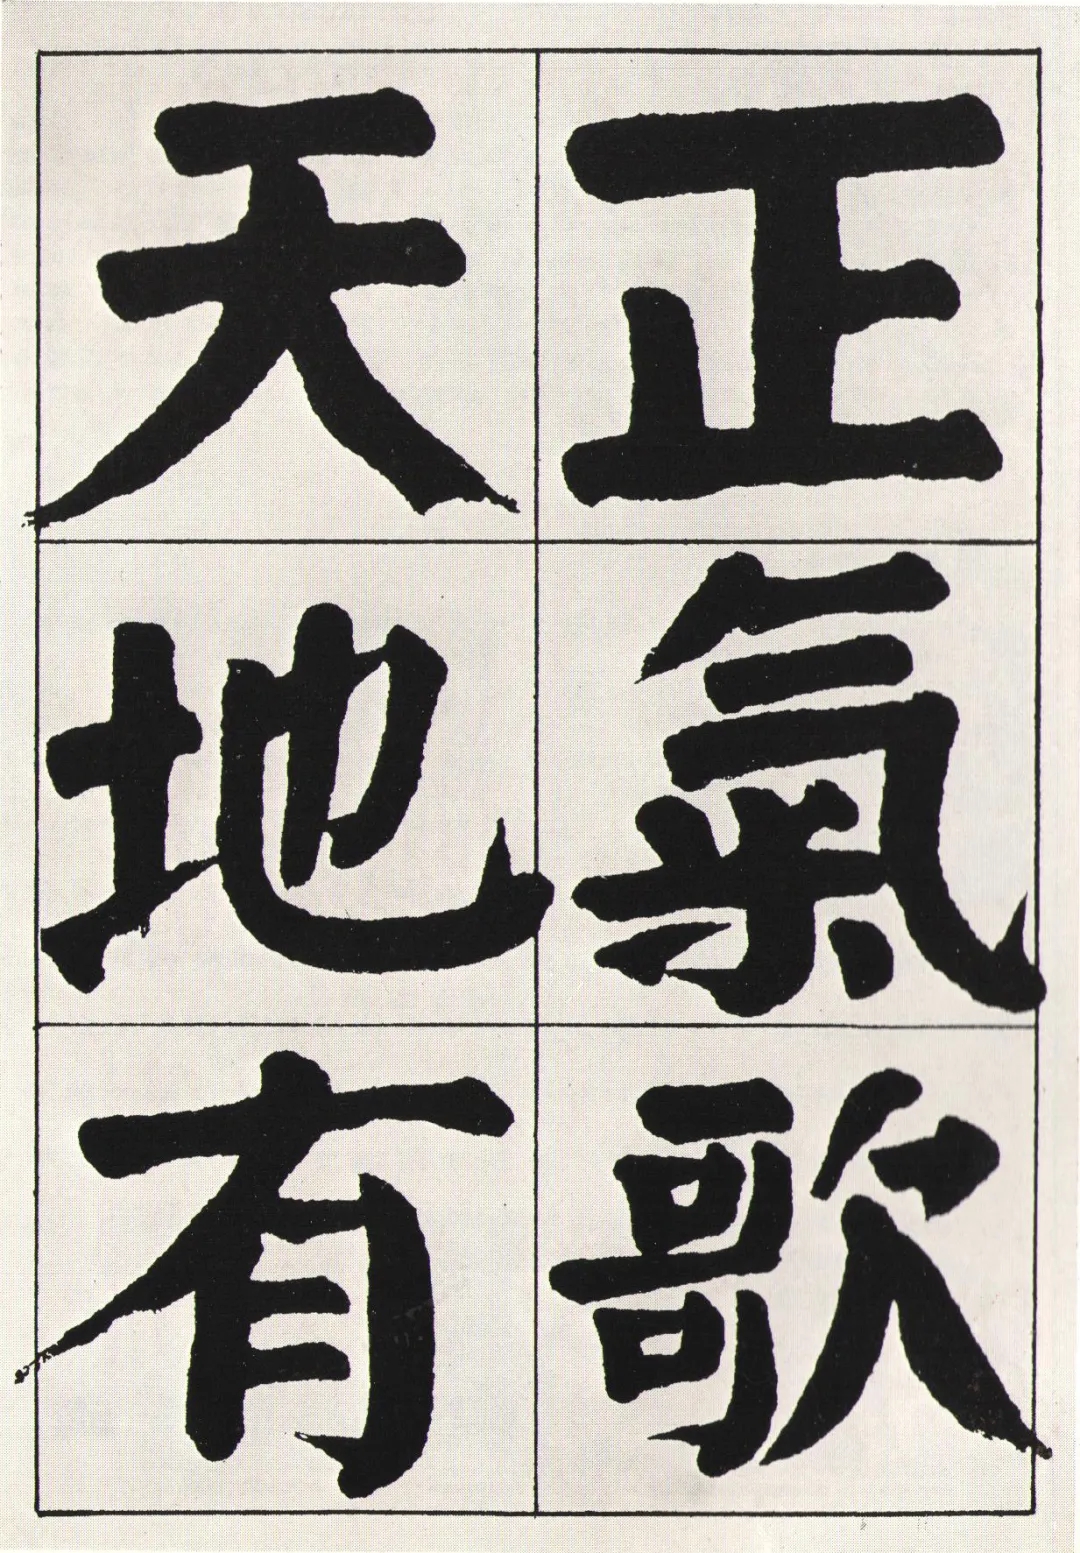 正氣歌
天地有